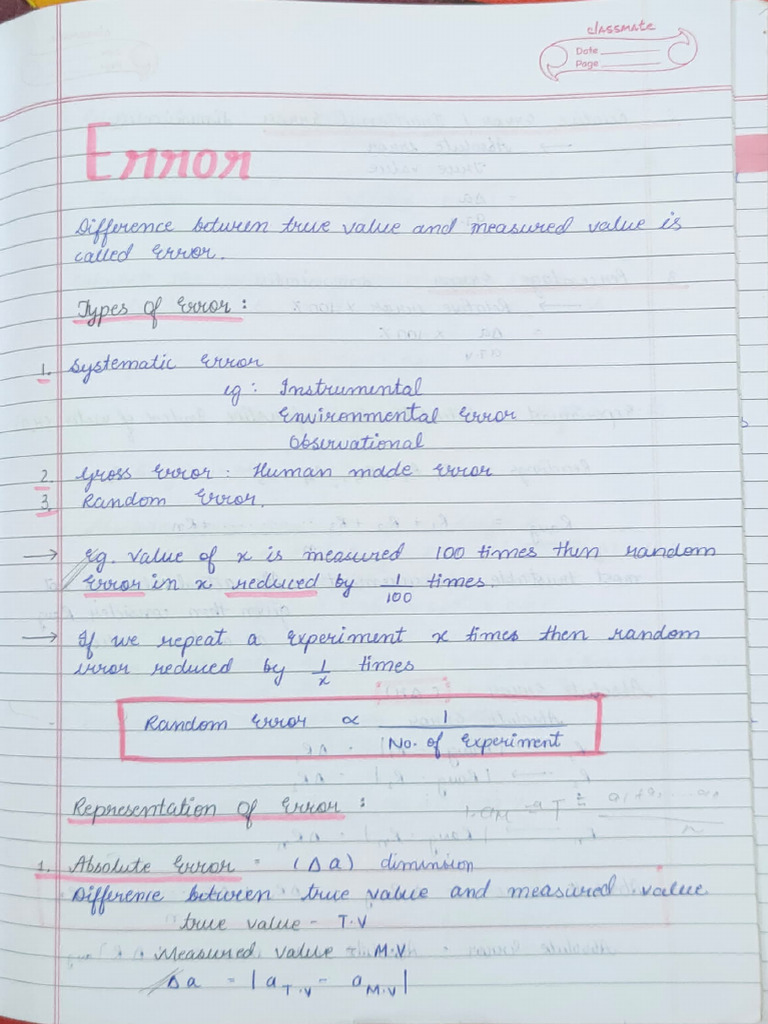 classmate
Date
Page
Error
Difference between true value and measured value is
called Error.
Types of Error :
1. Systematic Error
eg : Instrumental
Environmental Error
Observational
2. Gross Error : Human made Error
3. Random Error.
→ Eg. value of x is measured 100 times then random
Error in x reduced by 1/100 times.
→ If we repeat a experiment x times then random
error reduced by 1/x times
Random Error ∝ 1/No. of Experiment
Representation of Error :
1. Absolute Error = (Δa) dimension
Difference between true value and measured value
true value - T.V
Measured value - M.V
Δa = |a T.V - a M.V|